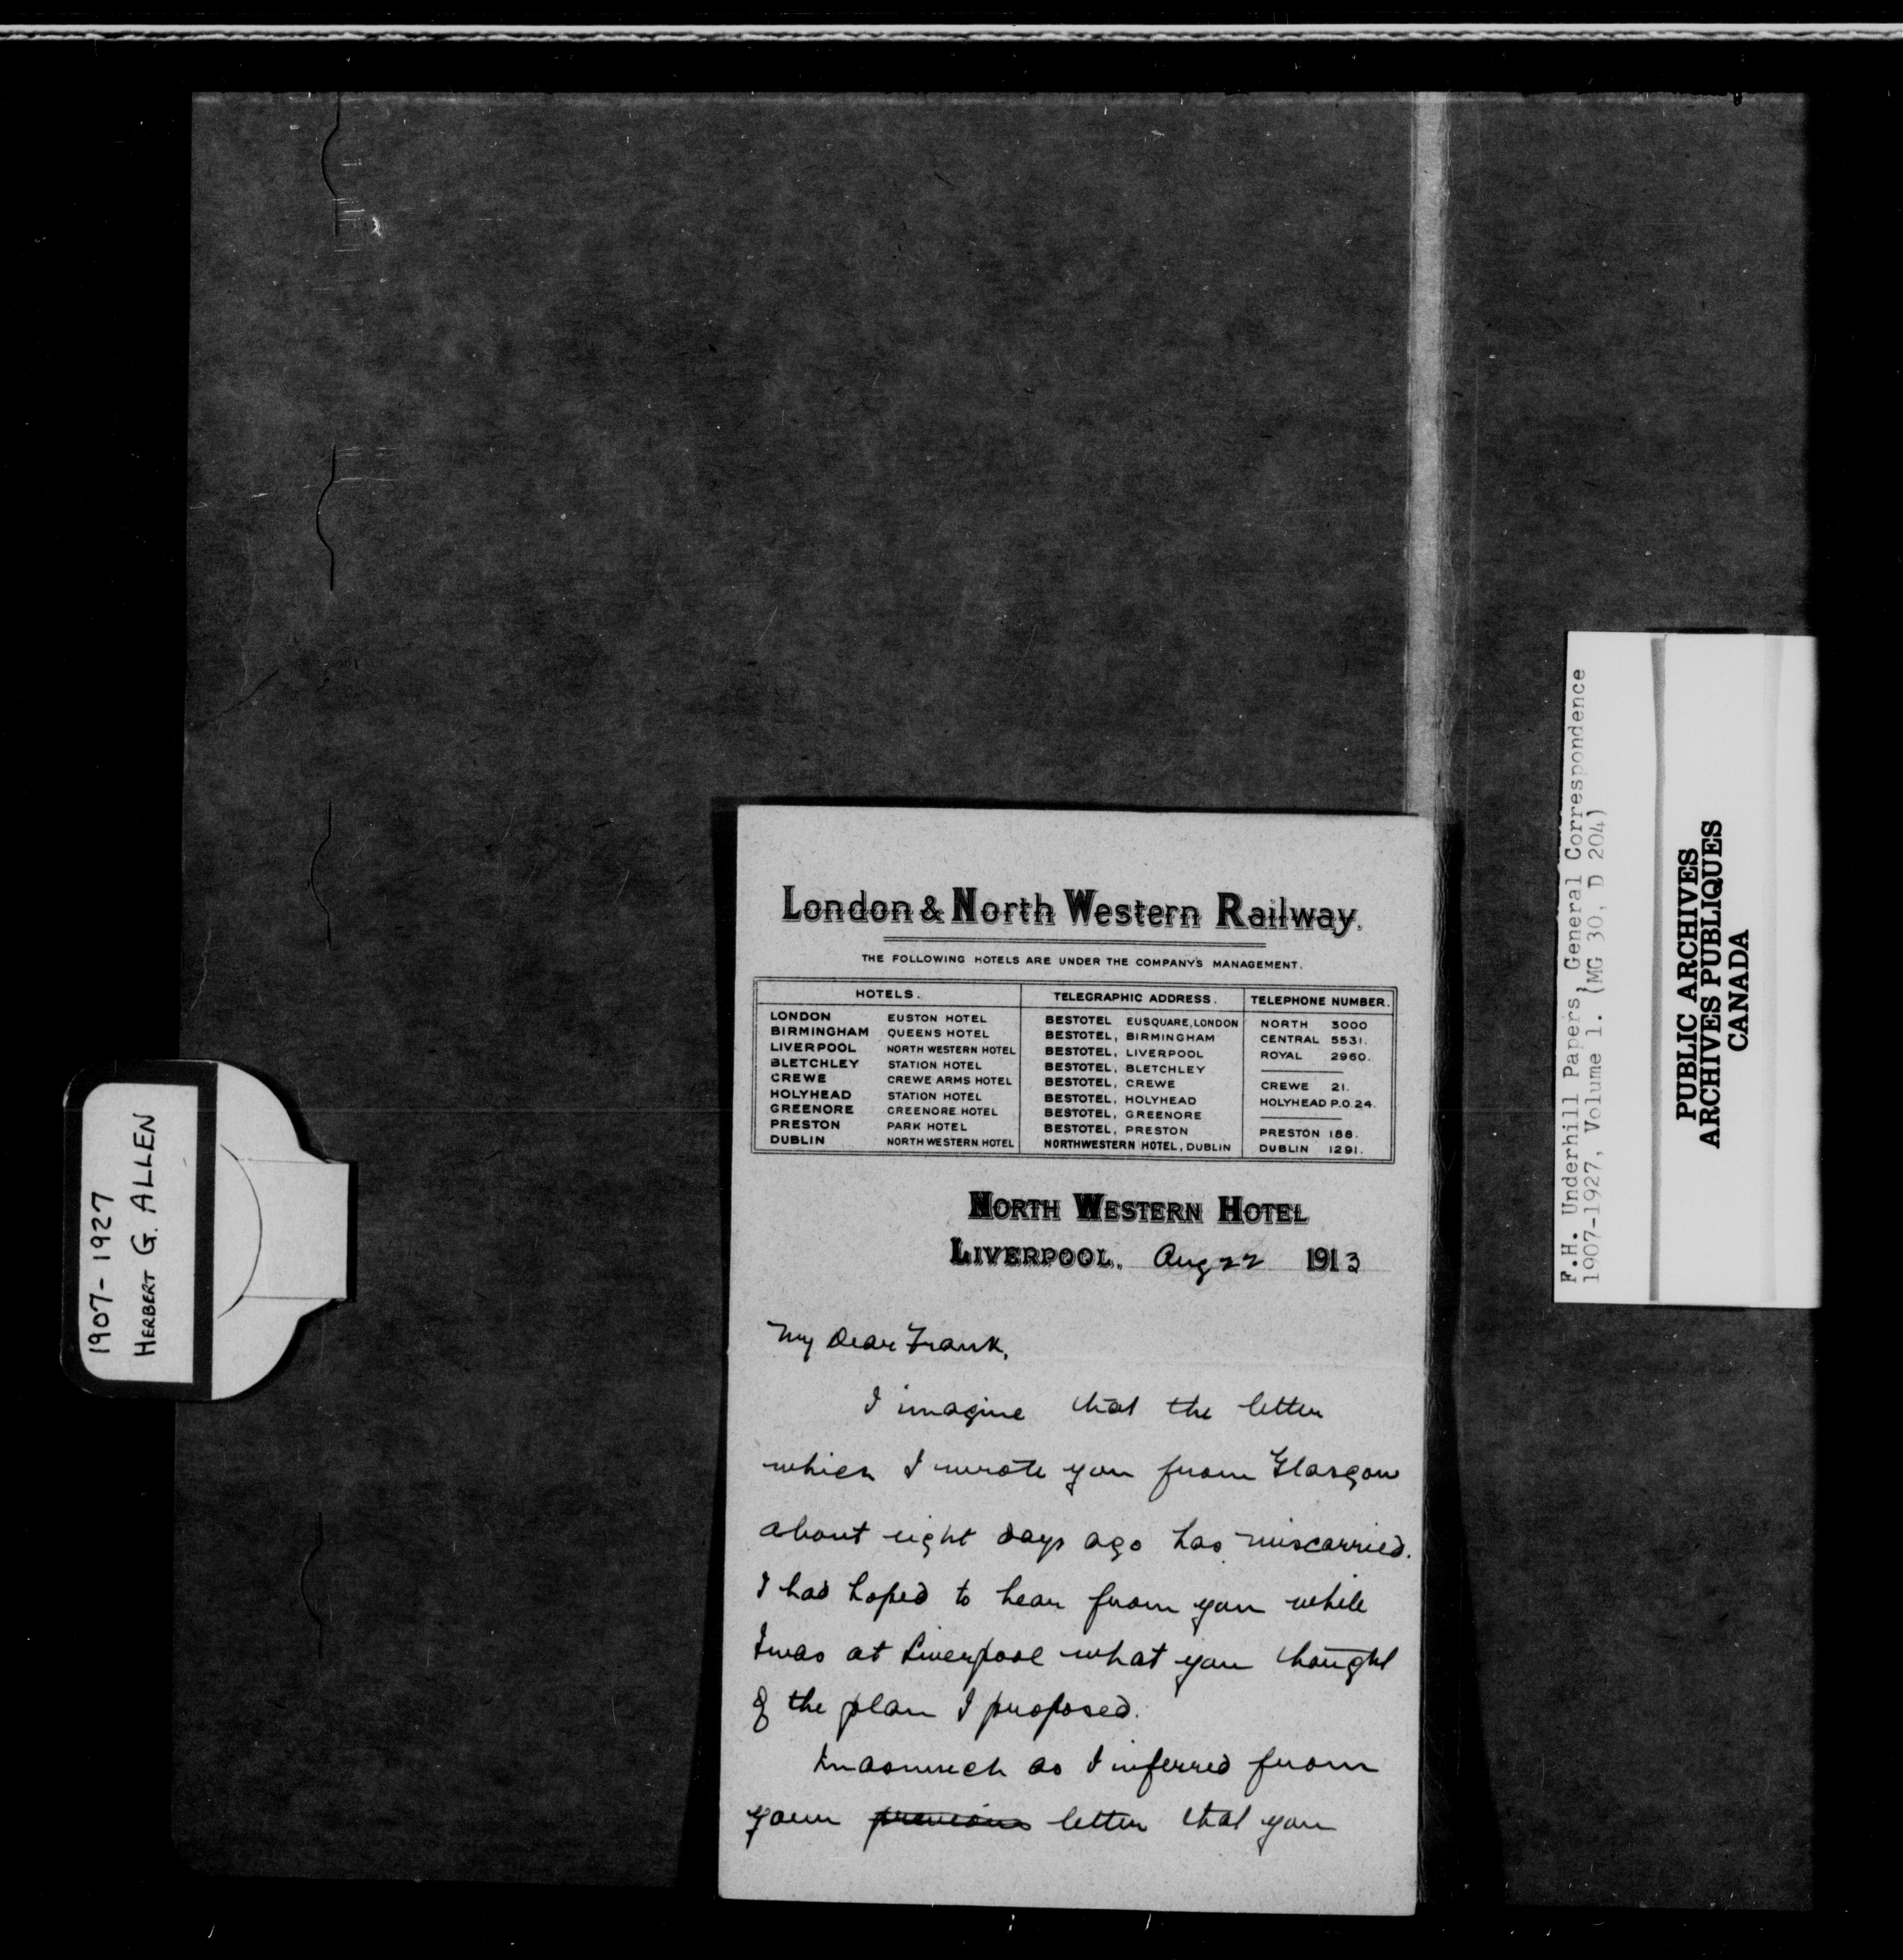 London & North Western Railway.
THE FOLLOWING HOTELS ARE UNDER THE COMPANY'S MANAGEMENT.
HOTELS. TELEGRAPHIC ADDRESS. TELEPHONE NUMBER.
LONDON EUSTON HOTEL BESTOTEL EUSQUARE, LONDON NORTH 3000
BIRMINGHAM QUEENS HOTEL BESTOTEL, BIRMINGHAM CENTRAL 5531.
LIVERPOOL NORTH WESTERN HOTEL BESTOTEL, LIVERPOOL ROYAL 2960.
BLETCHLEY STATION HOTEL BESTOTEL, BLETCHLEY
CREWE CREWE ARMS HOTEL BESTOTEL, CREWE CREWE 21.
HOLYHEAD STATION HOTEL BESTOTEL, HOLYHEAD HOLYHEAD P.O.24.
GREENORE GREENORE HOTEL BESTOTEL, GREENORE
PRESTON PARK HOTEL BESTOTEL, PRESTON PRESTON 188.
DUBLIN NORTH WESTERN HOTEL NORTHWESTERN HOTEL, DUBLIN DUBLIN 1291.
NORTH WESTERN HOTEL
LIVERPOOL. Aug 22 1913
My Dear Frank,
I imagine that the letter
which I wrote you from Glasgow
about eight days ago has miscarried.
I had hoped to hear from you while
I was at Liverpool what you thought
of the plan I proposed.
Inasmuch as I inferred from
your previous letter that you
1907-1927
HERBERT G. ALLEN
F.H. Underhill Papers, General Correspondence
1907-1927, Volume 1. (MG 30, D 204)
PUBLIC ARCHIVES
ARCHIVES PUBLIQUES
CANADA